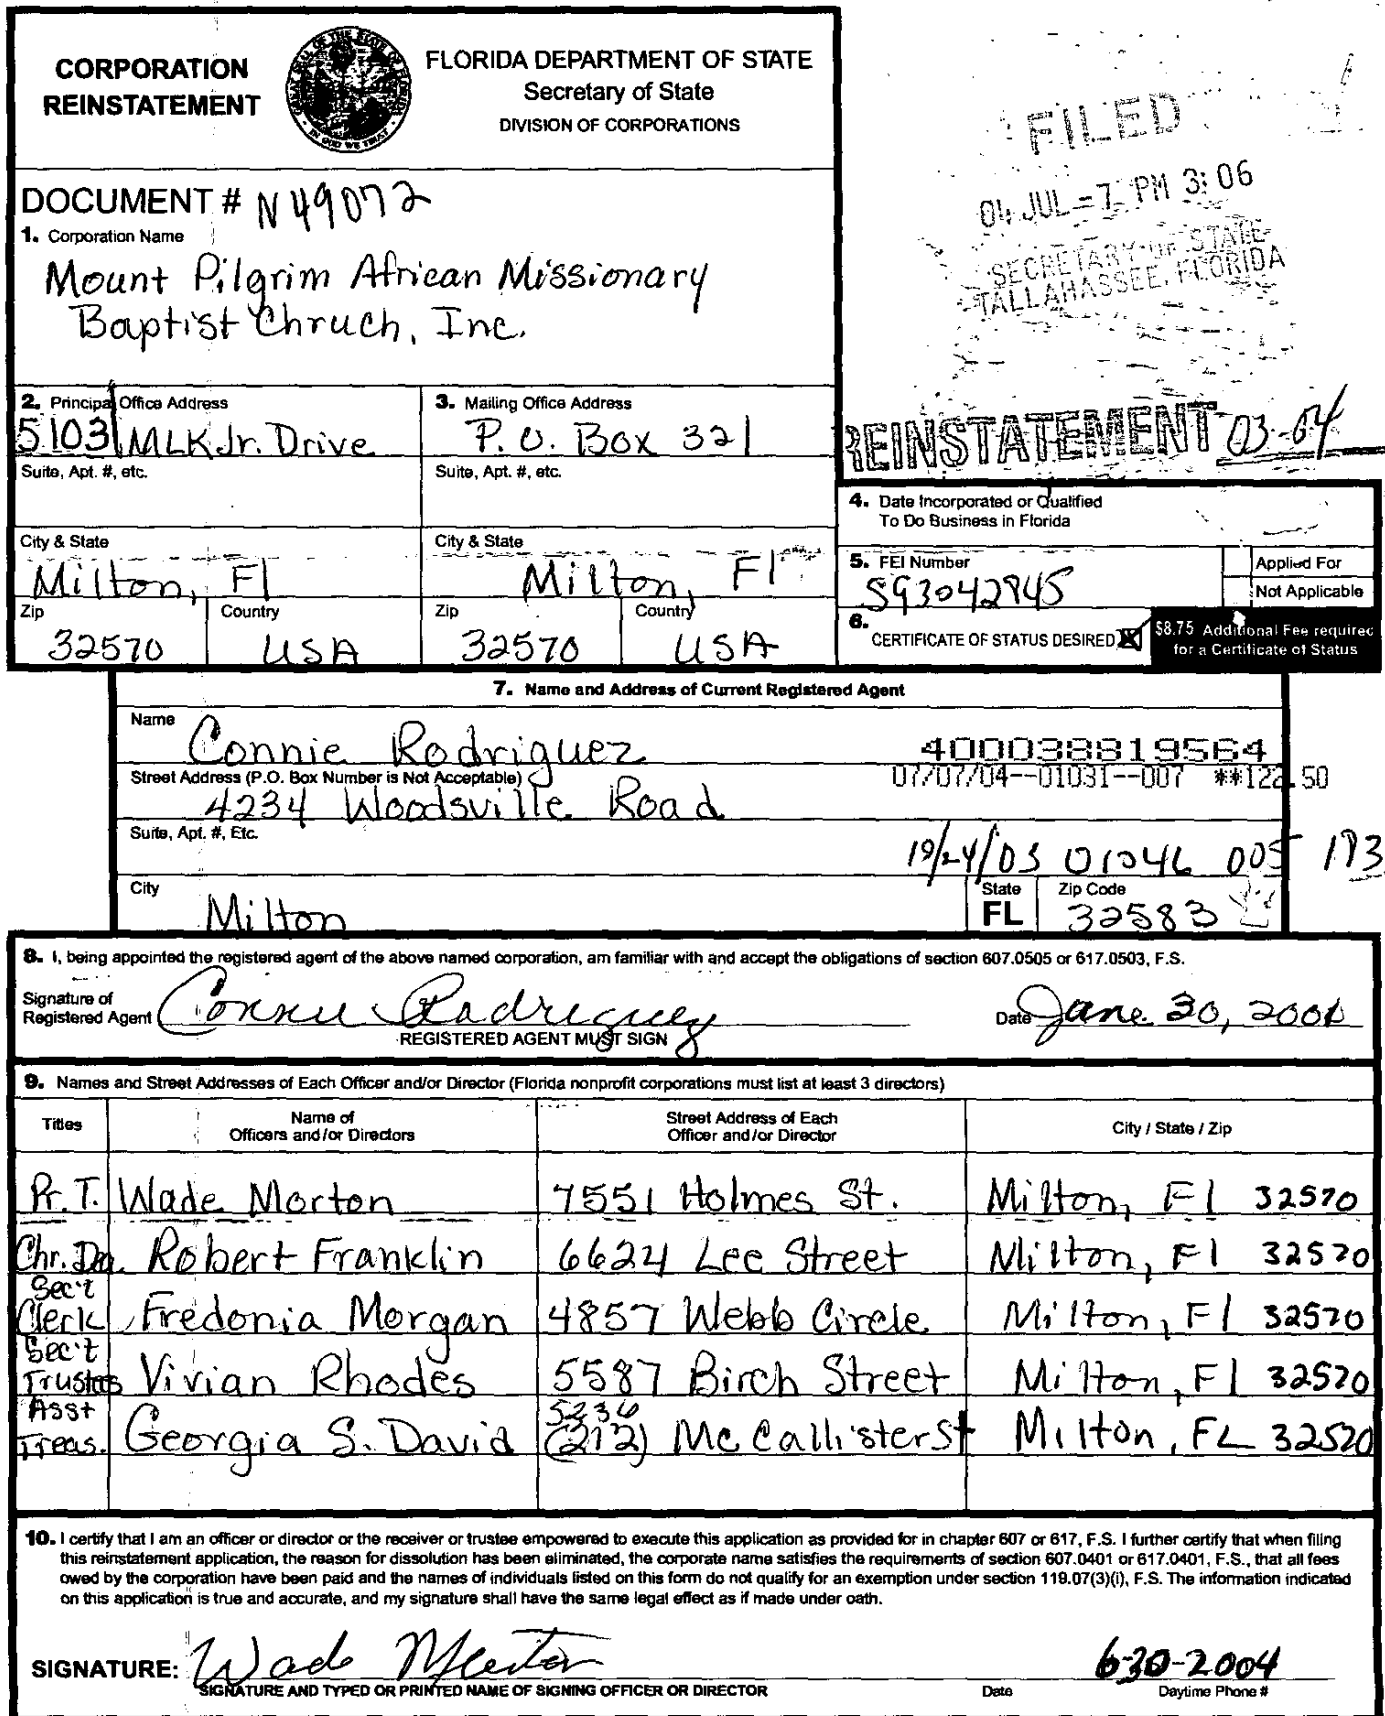 CORPORATION
REINSTATEMENT
FLORIDA DEPARTMENT OF STATE
Secretary of State
DIVISION OF CORPORATIONS
FILED
04 JUL -7 PM 3:06
SECRETARY OF STATE
TALLAHASSEE, FLORIDA
DOCUMENT # N49072
1. Corporation Name
Mount Pilgrim African Missionary
Baptist Chruch, Inc.
REINSTATEMENT 03-04
2. Principal Office Address
5103 MLK Jr. Drive
Suite, Apt. #, etc.
City & State
Milton, Fl
Zip Country
32570 USA
3. Mailing Office Address
P.O. Box 321
Suite, Apt. #, etc.
City & State
Milton, Fl
Zip Country
32570 USA
4. Date Incorporated or Qualified
To Do Business in Florida
5. FEI Number
593042945
Applied For
Not Applicable
6. CERTIFICATE OF STATUS DESIRED X
$8.75 Additional Fee required
for a Certificate of Status
7. Name and Address of Current Registered Agent
Name
Connie Rodriguez
400038819564
Street Address (P.O. Box Number is Not Acceptable)
07/07/04--01031--007 **122.50
4234 Woodsville Road
Suite, Apt. #, Etc.
01046 005
City State Zip Code
Milton FL 32583
8. I, being appointed the registered agent of the above named corporation, am familiar with and accept the obligations of section 607.0505 or 617.0503, F.S.
Signature of
Registered Agent Connie Rodriguez Date June 30, 2004
REGISTERED AGENT MUST SIGN
9. Names and Street Addresses of Each Officer and/or Director (Florida nonprofit corporations must list at least 3 directors)
Titles Name of Officers and/or Directors Street Address of Each Officer and/or Director City / State / Zip
Pr. T. Wade Morton 7551 Holmes St. Milton, Fl 32570
Chr. Dea. Robert Franklin 6624 Lee Street Milton, Fl 32570
Sec't
Clerk Fredonia Morgan 4857 Webb Circle Milton, Fl 32570
Sec't
Trustees Vivian Rhodes 5587 Birch Street Milton, Fl 32570
Asst 5236
Treas. Georgia S. David (212) McCallister St Milton, FL 32570
10. I certify that I am an officer or director or the receiver or trustee empowered to execute this application as provided for in chapter 607 or 617, F.S. I further certify that when filing
this reinstatement application, the reason for dissolution has been eliminated, the corporate name satisfies the requirements of section 607.0401 or 617.0401, F.S., that all fees
owed by the corporation have been paid and the names of individuals listed on this form do not qualify for an exemption under section 119.07(3)(i), F.S. The information indicated
on this application is true and accurate, and my signature shall have the same legal effect as if made under oath.
SIGNATURE: Wade Morton 6-30-2004
SIGNATURE AND TYPED OR PRINTED NAME OF SIGNING OFFICER OR DIRECTOR Date Daytime Phone #